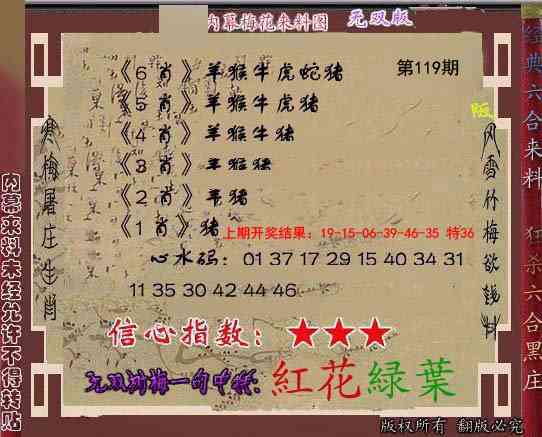 内幕梅花来料图 无双版
《6 肖》羊猴牛虎蛇猪
第119期
《5 肖》羊猴牛虎猪
《4 肖》羊猴牛猪
《3 肖》羊猴猪
《2 肖》羊猪
《1 肖》猪
上期开奖结果：19-15-06-39-46-35 特36
心水码：01 37 17 29 15 40 34 31
11 35 30 42 44 46
信心指数：★★★
无双刘梅一句中特：紅花緑葉
版权所有 翻版必究
寒梅屠庄生肖
内幕来料未经允许不得转贴
版
风雪竹梅欲钱料
经典六合来料 狂杀六合黑庄